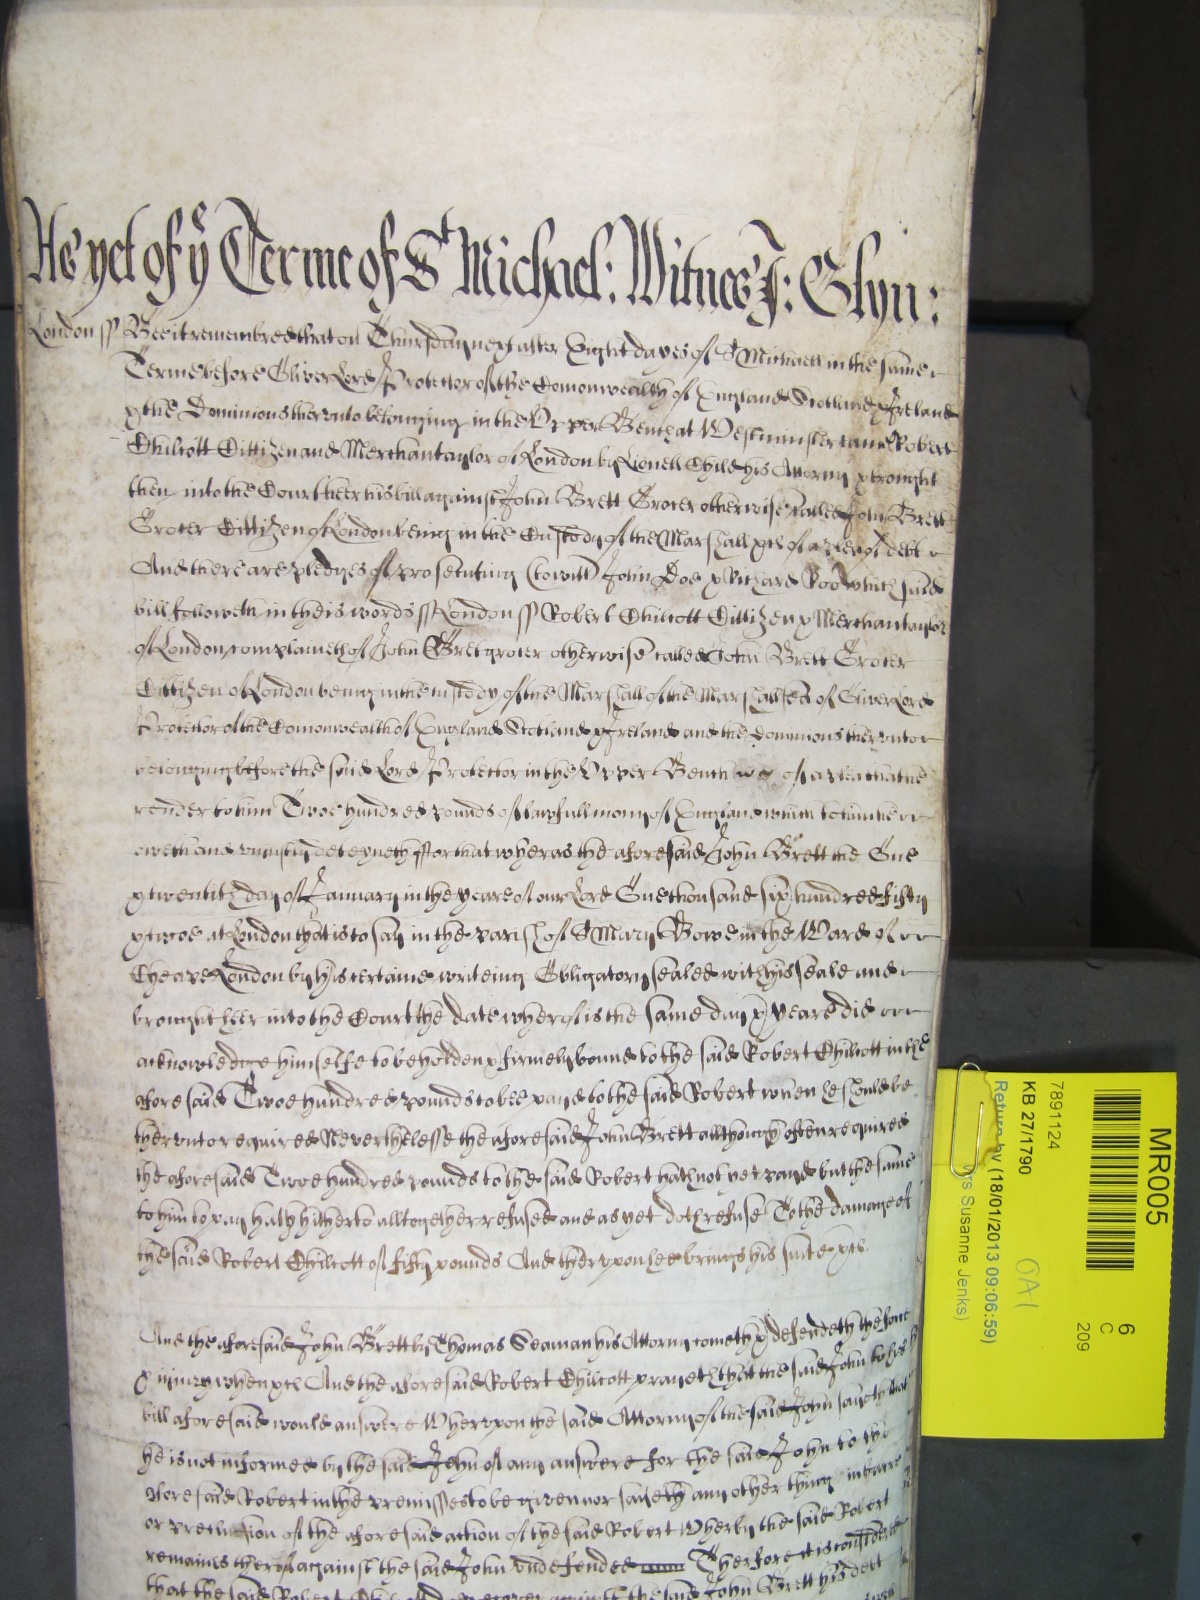 As yet of ye Terme of St Michael: Witnes J: Glyn:
London ss Bee it remembred that on Thursday next after Eight dayes of St Michaell in the same
Terme before Oliver Lord Protector of the Comonwealth of England Scotland & Ireland
& the Dominions thereunto belonging in the Upper Bench at Westminster came Robert
Chilcott Cittizen and Merchantaylor of London by Lionell Child his Attorny & brought
then into the Court heer his bill against John Brett Grocer otherwise called John Brett
Grocer Cittizen of London being in the Custody of the Marshall &c of a plea of debt
And there are pledges of prosecuting (to witt) John Doe & Richard Roo which said
bill followeth in theis words ss London ss Robert Chilcott Cittizen & Merchantaylor
of London complaineth of John Bret grocer otherwise called John Brett Grocer
Cittizen of London being in the custody of the Marshall of the Marshallsea of Oliver Lord
Protector of the Comonwealth of England Scotland & Ireland and the dominions thereunto
belonging before the said Lord Protector in the Upper Bench of a plea that he
render to him Twoe hundred pounds of lawfull mony of England which to him he
oweth and uniustly deteyneth ffor that wheras the aforesaid John Brett the One
& twentith day of January in the yeare of our Lord One thousand six hundred fifty
& twoe at London that is to say in the parish of St Mary Bowe in the Ward of
Cheape London by his certaine writeing Obligatory sealed with his seale and
brought heer into the Court the date wherof is the same day & yeare did
acknowledge himselfe to be holden & firmely bound to the said Robert Chilcott in the
aforesaid Twoe hundred pounds to bee payd to the said Robert when he should be
therunto required Neverthelesse the aforesaid John Brett allthough often required
the aforesaid Twoe hundred pounds to the said Robert hath not yet payd but the same
to him to pay hath hitherto alltogether refused and as yet doth refuse To the damage of
the said Robert Chilcott of fifty pounds And therupon hee brings his suite &c
And the aforesaid John Brett by Thomas Seaman his Attorny cometh & defendeth the force
& iniury when &c And the aforesaid Robert Chilcott prayeth that the said John to his
bill aforesaid would answere Wherupon the said Attorny of the said John sayeth that
he is not informed by the said John of any answere for the said John to the
aforesaid Robert in the premisses to be given nor sayeth any other thing in barre
or preclusion of the aforesaid action of the said Robert Wherby the said Robert
remaines therof against the said John undefended Therfore it is considered
that the said Robert against the said John Brett his debt
MR005
6
C
209
7891124
KB 27/1790
Return by (18/01/2013 09:06:59)
rs Susanne Jenks)